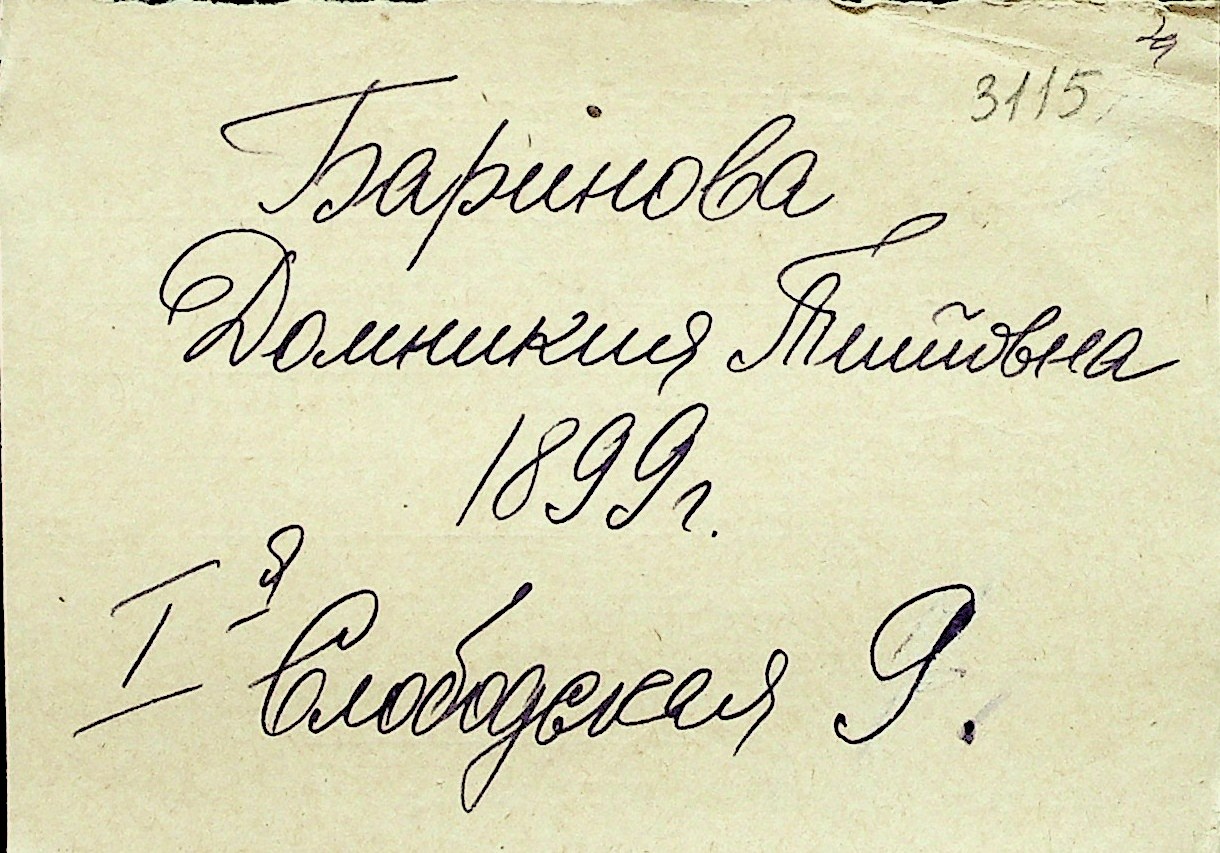 3115
Баринова
Домникия Титовна
1899г.
I я Слободская 9.